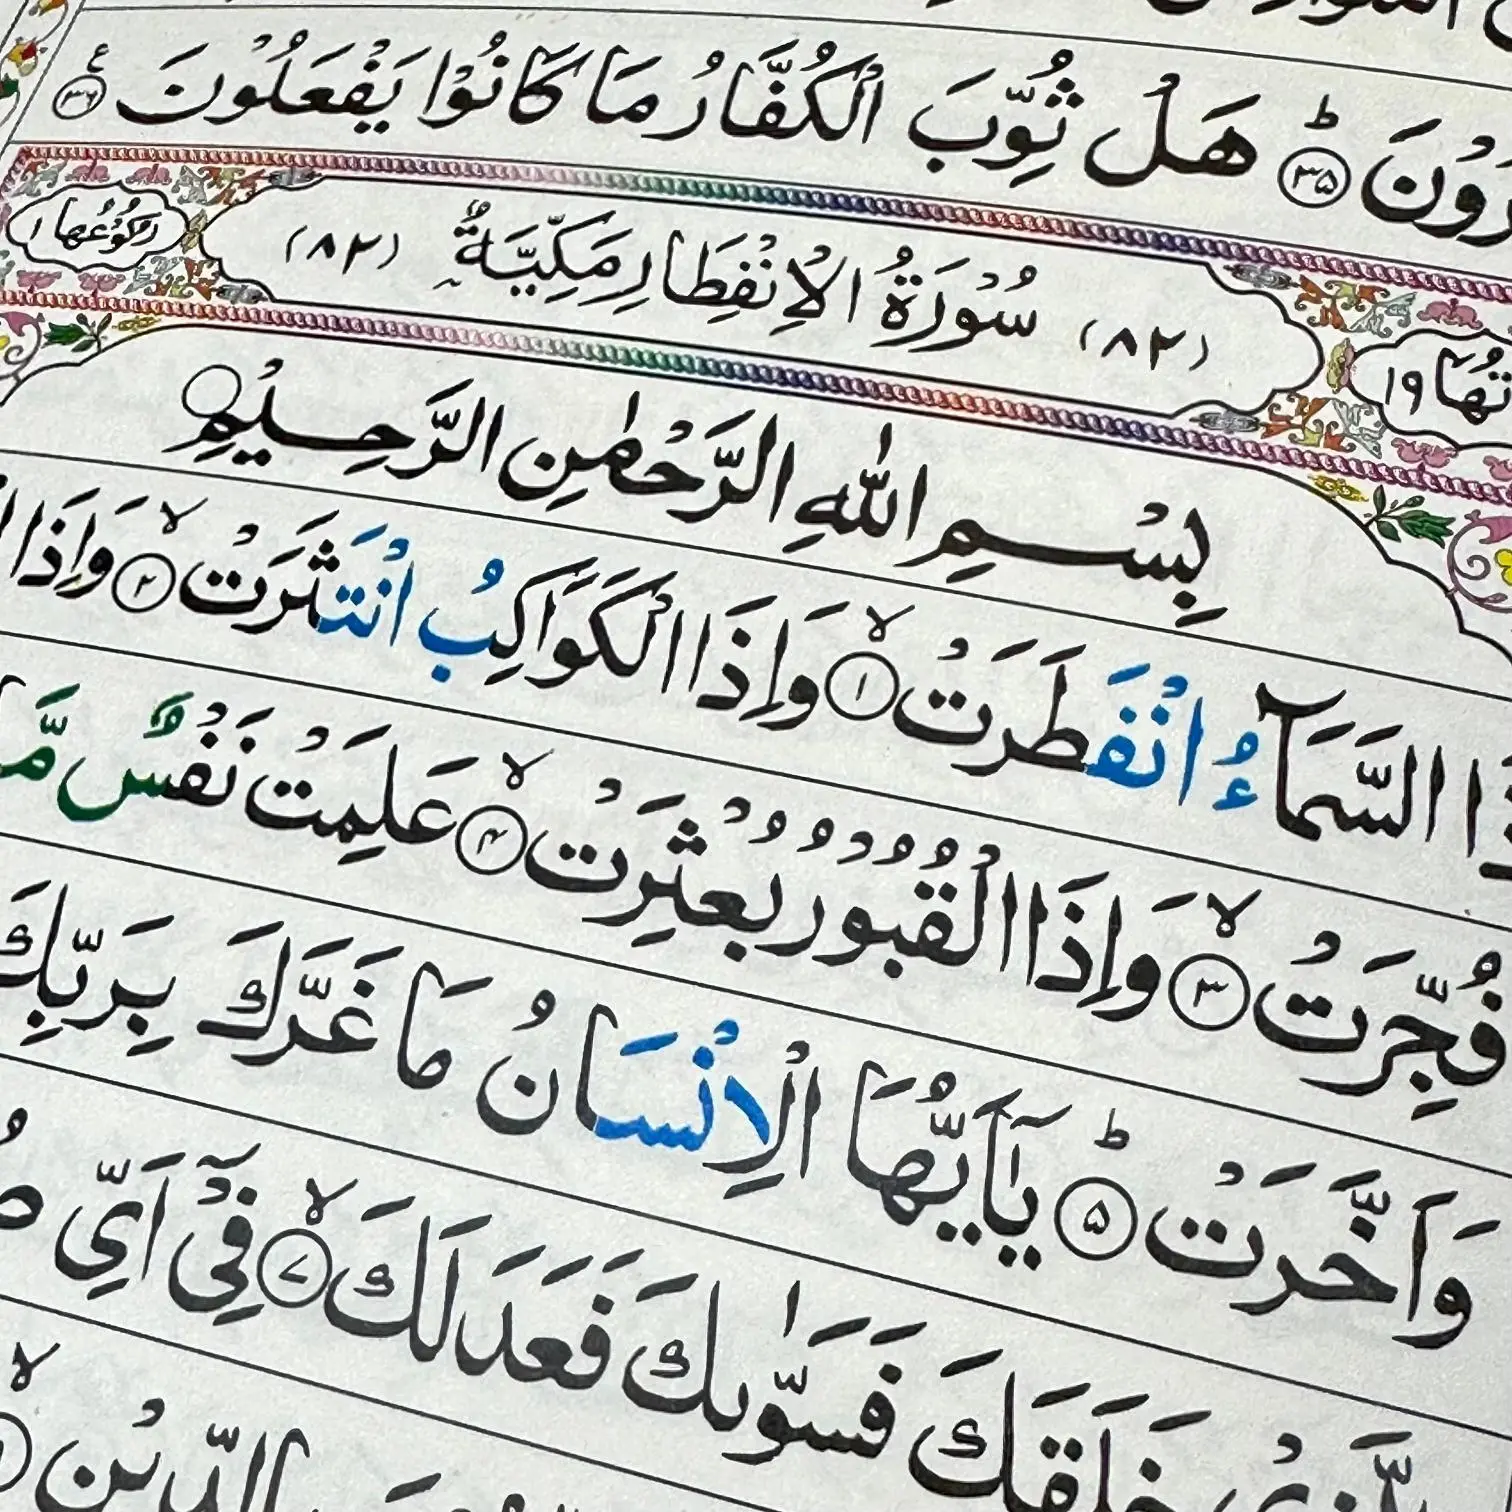 هَلْ ثُوِّبَ الْكُفَّارُ مَا كَانُوْا يَفْعَلُوْنَ ۳۶
رُكُوْعُهَا ۱ (۸۲) سُوْرَةُ الْاِنْفِطَارِ مَكِّيَّةٌ (۸۲) ۱۹
بِسْمِ اللّٰهِ الرَّحْمٰنِ الرَّحِيْمِ
السَّمَآءُ انْفَطَرَتْ ۙ۱ وَاِذَا الْكَوَاكِبُ انْتَثَرَتْ ۙ۲ وَاِذَا
فُجِّرَتْ ۙ۳ وَاِذَا الْقُبُوْرُ بُعْثِرَتْ ۙ۴ عَلِمَتْ نَفْسٌ مَّ
وَاَخَّرَتْ ؕ۵ يٰۤاَيُّهَا الْاِنْسَانُ مَا غَرَّكَ بِرَبِّكَ
خَلَقَكَ فَسَوّٰىكَ فَعَدَلَكَ ۙ۷ فِيْۤ اَيِّ
الدِّيْنِ